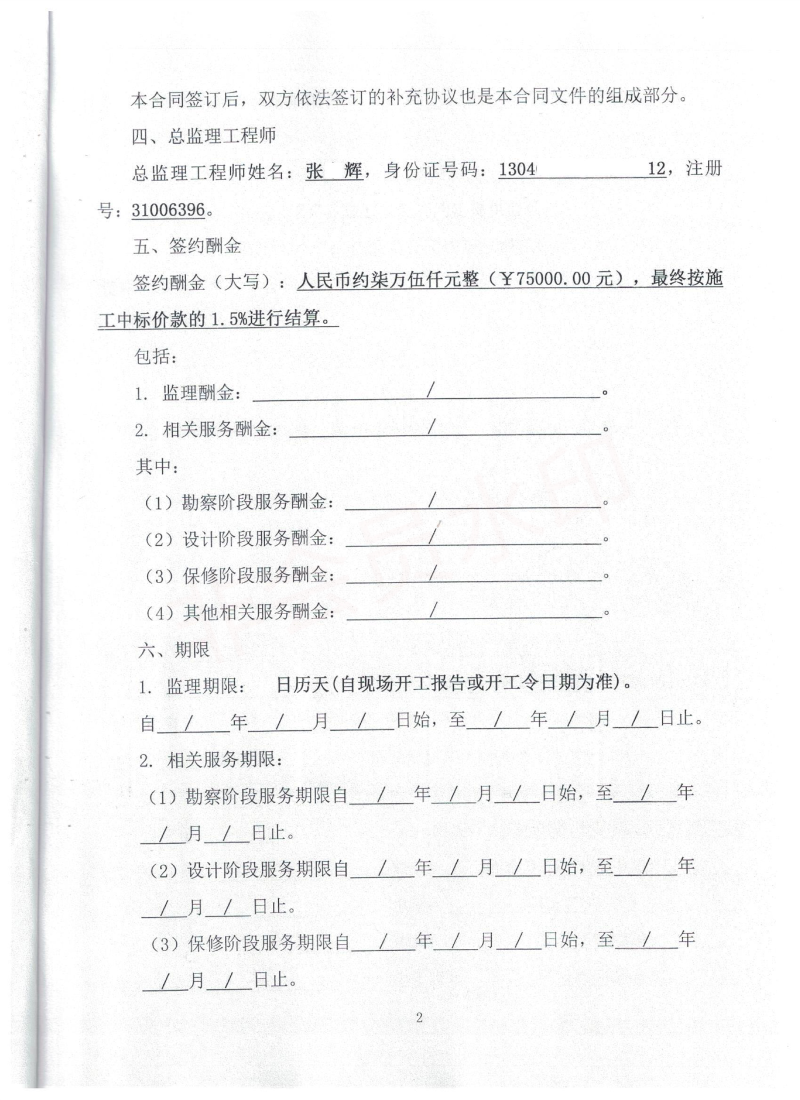 本合同签订后，双方依法签订的补充协议也是本合同文件的组成部分。
四、总监理工程师
总监理工程师姓名：张 辉，身份证号码：1304 12，注册
号：31006396。
五、签约酬金
签约酬金（大写）：人民币约柒万伍仟元整（￥75000.00 元），最终按施
工中标价款的 1.5%进行结算。
包括：
1. 监理酬金：/。
2. 相关服务酬金：/。
其中：
（1）勘察阶段服务酬金：/。
（2）设计阶段服务酬金：/。
（3）保修阶段服务酬金：/。
（4）其他相关服务酬金：/。
六、期限
1. 监理期限： 日历天(自现场开工报告或开工令日期为准)。
自 / 年 / 月 / 日始，至 / 年 / 月 / 日止。
2. 相关服务期限：
（1）勘察阶段服务期限自 / 年 / 月 / 日始，至 / 年
/ 月 / 日止。
（2）设计阶段服务期限自 / 年 / 月 / 日始，至 / 年
/ 月 / 日止。
（3）保修阶段服务期限自 / 年 / 月 / 日始，至 / 年
/ 月 / 日止。
2